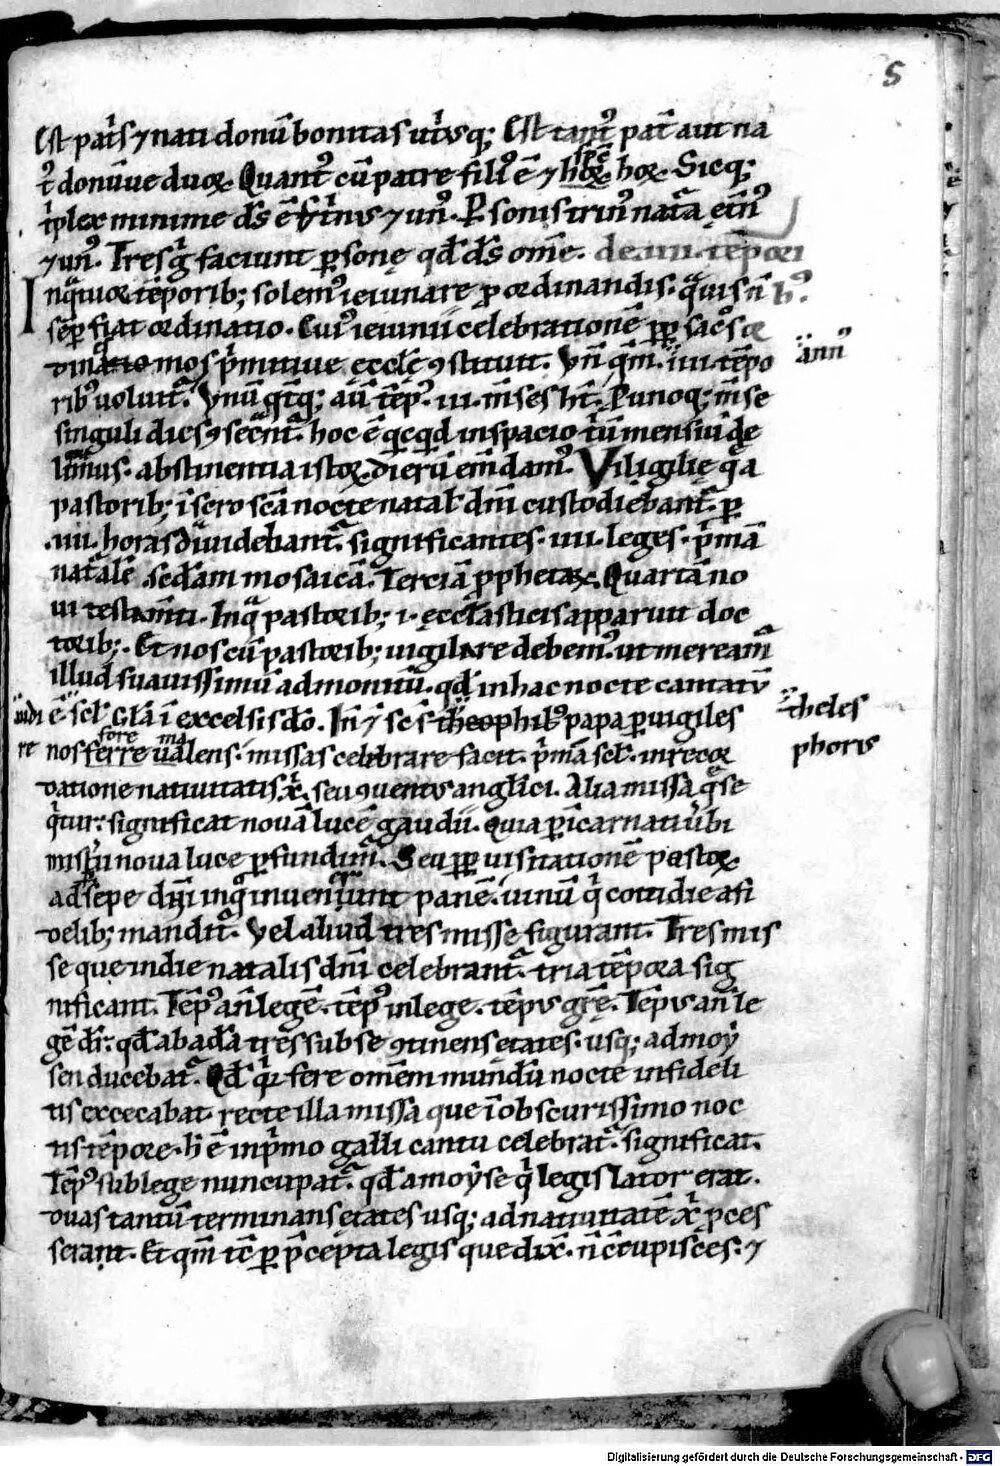 5
Est pat̄s ⁊ nati donū bonitas ut̓vsq; Est tant᷒ pat̄ aut na
t᷒ donūue duoꝝ. Quant᷒ cū patre fili᷒ ē ⁊ hoꝝ hoꝝ. Sicq;
spc̄
t̓plex minime d̄s ē t̓nvs ⁊ un᷒. P sonis trin᷒ natā ęt̄n᷒
⁊ un᷒. Tres g̓ faciunt ꝑsonę qd̄ d̄s om̄e. de .iiii. tēpori
Inq̄tuor tēporib; solem᷒ ieiunare ꝓ ordinandis. q̄uis n̄ b᷒.
seꝑ fiat ordinatio. Cui᷒ ieiunii celebrationē ꝓꝑ sac̄os or
dinatio mos p̓mitiue ęccl̄ę ꝯstituit. Vn̄ qm̄ .iiii. tēpo
ann᷒
rib᷒ uoluit᷑. Vnū q̄tq; aū tēp᷒ .iii. m̄ses ht̄. P unoq; m̄se
singuli dies ꝯsecn̄t᷑. hoc ē q̄cq̄d in spacio t̓ū mensiū de
linq̄mus. abstinentia istoꝝ dierū em̄dam᷒. Viligilię q̄ a
pastorib; ī sero sc̄a nocte natal̄ dn̄i custodiebant᷑ ꝑ
.iiii. horas diuidebant᷑. significantes .iiii. leges. p̓mā
nat᷑alē. sedam mosaicā. Terciā ꝓphetaꝝ. Quartā no
ui testam̄ti. In q᷑ pastorib; .i. ęccl̄asticis apparuit doc
torib;. Et nos cū pastorib; uigilare debem᷒. ut meream᷑
illud suauissimū admonitū. qd̄ in hac nocte cantatū
ē. scl̄. Gl̄a ī excelsis dō. In ⁊ sc̄s theophil᷒ papa ꝑuigiles
audi
re
theles
phorvs
nos ferre ualens. missas celebrare facit. p̓mā scl̄. in recor
fore ma
datione natiuitatis x̄. seu ꝯuentvs angl̓ici. Alia missa q̄ se
q̓tur: significat nouā lucē gaudii. Quia ꝑ īcarnati uūbi
mist̓iū noua luce ꝑfundim᷒. Seu ꝓꝑ uisitationē pastoꝝ
ad p̄sepe dn̄i in q᷑ inuenerunt panē. uiuū q̓ cottidie a fi
delib; mandit᷑. Vel aliud tres missę figurant. Tres mis
se que in die natalis dn̄i celebrant᷑. tria tēpora sig
nificant. Tēp᷒ an̄ legē. tēp᷒ in lege. tēpvs gr̄ę. Tēpvs an̄ le
gē dr̄. qd̄ ab adā tres sub se ꝯtinens ętates. usq; ad moy̓
sen ducebat᷑. Qd̄ q̓r fere omēm mundū nocte infideli
tis excecabat. recte illa missa que ī obscurissimo noc
tis tēpore. h̄ ē in p̓mo galli cantu celebrat᷑. significat.
Tēp᷒ sub lege nuncupat᷑. qd̄ a moy̓se q̓ legis lator erat.
duas tantū terminans ętates usq; ad natiuitatē x̄ ꝓces
serant. Et qm̄ tc̄ ꝑ p̄cepta legis que dix̄. n̄ ꝯcupisces: ⁊
Digitalisierung gefördert durch die Deutsche Forschungsgemeinschaft - DFG